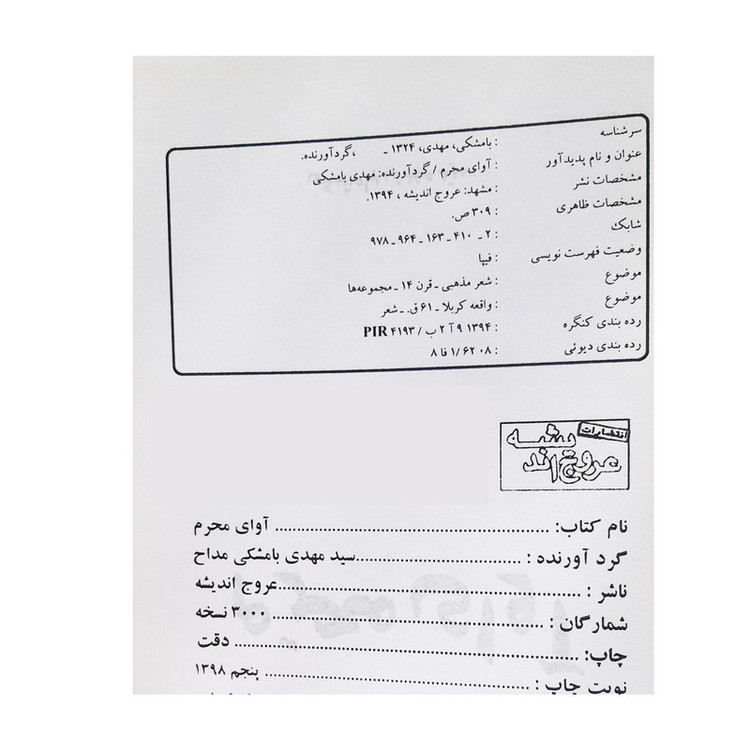 سرشناسه : بامشکی، مهدی، ۱۳۲۴ ـ ، گردآورنده.
عنوان و نام پدیدآور : آوای محرم / گردآورنده: مهدی بامشکی
مشخصات نشر : مشهد: عروج اندیشه ، ۱۳۹۴.
مشخصات ظاهری : ۳۰۹ ص.
شابک : ۲ ـ ۴۱۰ ـ ۱۶۳ ـ ۹۶۴ ـ ۹۷۸
وضعیت فهرست نویسی : فیپا
موضوع : شعر مذهبی ـ قرن ۱۴ ـ مجموعه‌ها
موضوع : واقعه کربلا ـ ۶۱ ق. ـ شعر
رده بندی کنگره : ۱۳۹۴ ۹ آ ۲ ب / ۴۱۹۳ PIR
رده بندی دیوئی : ۱/۶۲۰۸ فا ۸
انتشارات
عروج اندیشه
نام کتاب: ........ آوای محرم
گرد آورنده : ........ سید مهدی بامشکی مداح
ناشر : ........ عروج اندیشه
شمارگان : ........ ۳۰۰۰ نسخه
چاپ: ........ دقت
نوبت چاپ : ........ پنجم ۱۳۹۸